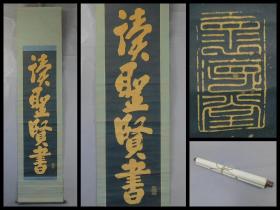 讀聖賢書
讀聖賢書